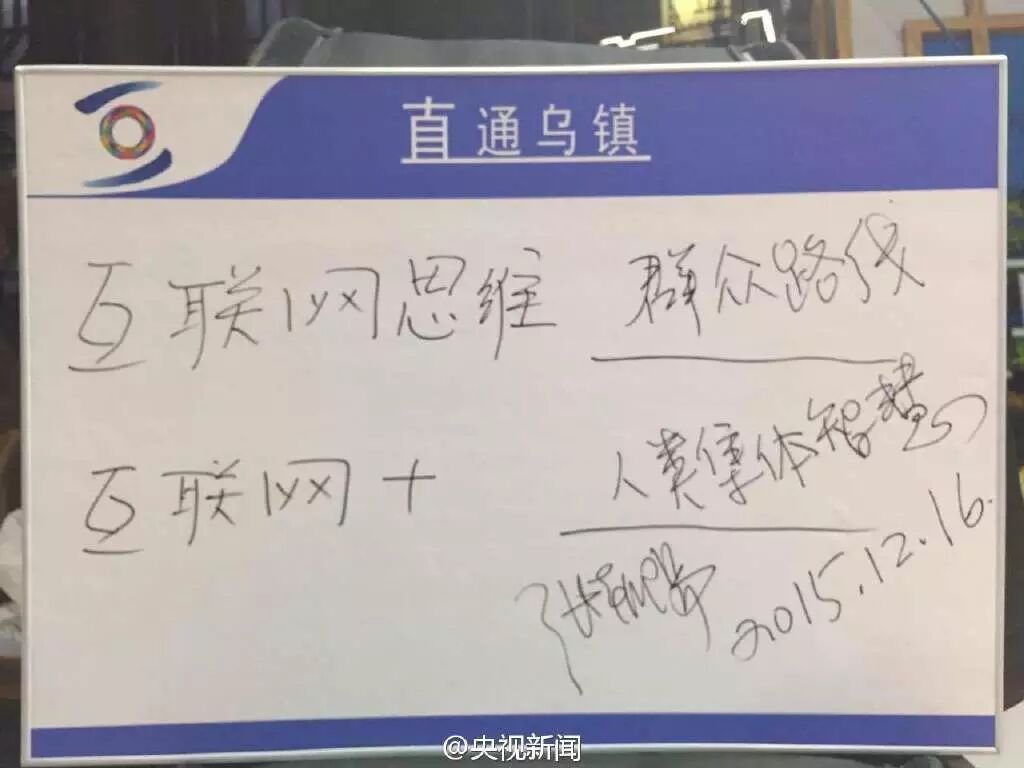 直通乌镇
互联网思维 群众路线
互联网+ 人类集体智慧
2015.12.16.
@央视新闻